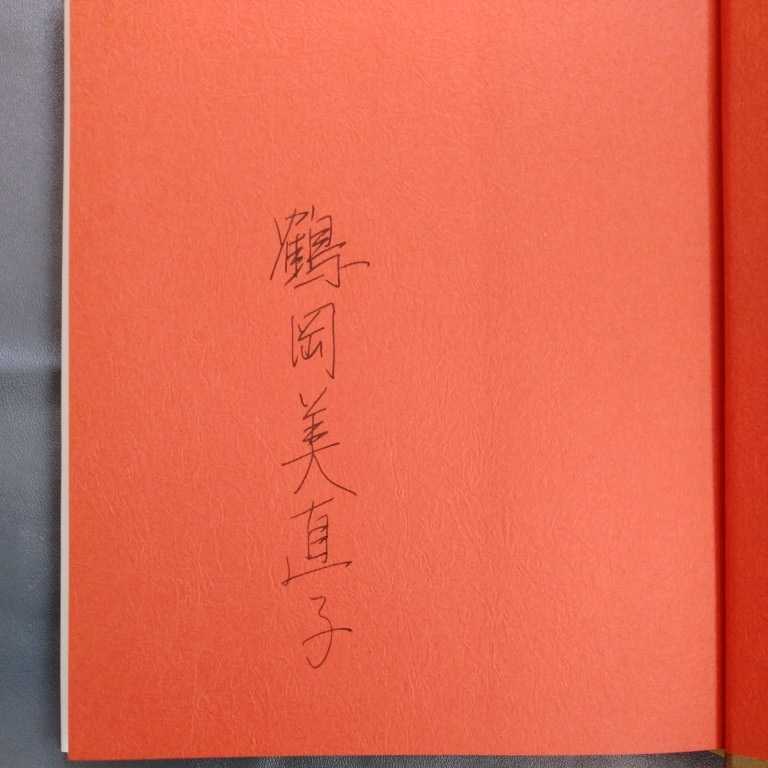 鶴岡美直子